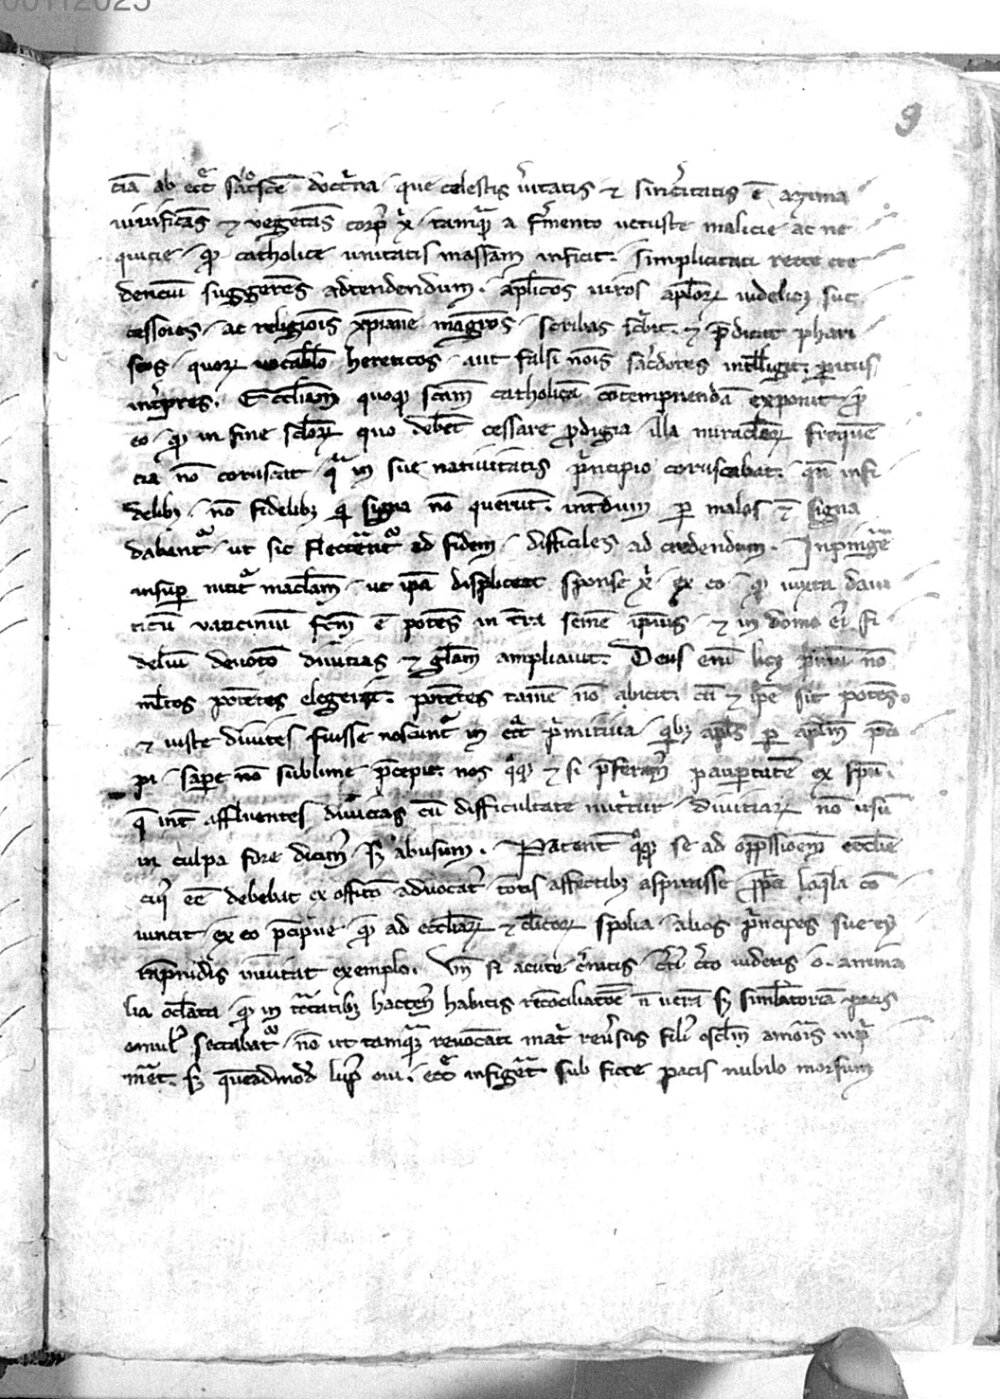 9
ciā ab eccā sācrōscē doctͥna que celestis v̄itatis ⁊ sinc̄itatis ē azima
vivificās ⁊ vegetās corpꝰ xͥ tamqᷓ a f̄mento vetuste malicie ac ne
quicie qd catholice unitatis massam inficit. simplicitati recte cre
dentiū suggerēs adtendendum. apl̄icos viros apl̄oꝝ videlicꝫ suc
cessores ac religiōis xp̄iane maḡros scribas
seos quoꝝ vocabl̄o hereticos aut falsi nōis sac̄dotes intell̄igit. p̄itus
int̄pres. Eccl̄iam quoqꝫ sc̄am catholicā contempnendā exponit ꝓ
eo qd in fine scl̄oꝝ quo debēt cessare ꝓdigia illa miracl̄oꝝ frequē
cia nō coruscat qᷓ in sue nativitatis pͥncipio coruscabat. qn̄ infi
delibꝫ nō fidelibꝫ qͥ signa nō querūt. int̄dum ꝑ malos signa
dabant᷑ ut sic flectērent᷑ ad fidem difficiles ad credendum. Inpingͤe
insuꝑ nitit᷑ macl̄am ut ip̄a displiceat sponse xͥ ex eo qd iuxta davi
ticū vaticiniū fc̄m ē potēs in t̄ra semē ipiūs ⁊ in domo eiꝰ fi
deliū devotō divitias ⁊ gl̄am ampliavit. Deus enī licꝫ nō
ml̄tos potētes elegerit. potētes tamē nō abicit. cū ⁊ ip̄e sit potēs.
⁊ iuste divites fuisse noscunt᷑ in ecc̄a pͥmitiva qͥbꝫ apl̄s ꝑ
sap̄e nō sublime p̄cepit. nos qͦqꝫ ⁊ si p̄feramꝰ pauꝑtatē ex sp̄u.
q̄ int̄ affluentes divicias cū difficultate nutͥtur divitiaꝝ nō usū
in culpa fore dicimꝰ sꝫ abusum. Patent qͦqꝫ se ad opp̄ssionem eccl̄ie
cuiꝰ eē debebat ex officō advocatꝰ totis affectibꝫ aspirasse ꝓp̄a loq̄la cō
vincit ex eo p̄cipue qd ad eccl̄iaꝝ ⁊ cl̄icoꝝ spolia alios pͥncipes sue
rapinidis invitat exemplo. Vn̄ si acute c̄nitis c̄to videtis o. anima
lia ocl̄ata qd in t̄ctatibꝫ hactenꝰ habitis recōciliatoē n̄ verā sꝫ siml̄atoriā pacis
emulꝰ sectabat᷑ nō ut tamqᷓ revocati mat̄ rev̄sus filiꝰ oscl̄m amoris inpͥ
m̄et. sꝫ quēadmod̄ lupꝰ ovi. ecc̄e infiḡet sub ficte pacis nubilo morsum